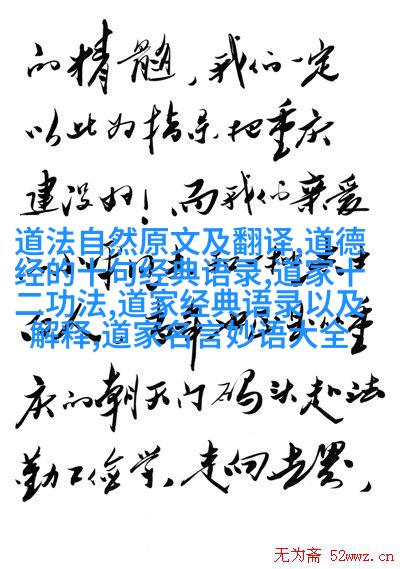 的精髓，我们一定
以此为指导把重庆
建设好！而我们亲爱
道法自然原文及翻译,道德
经的十句经典语录,道家十
二功法,道家经典语录以及
解释,道家名言妙语大全
庆的朝天门码头赴法
勤工俭学，走向世界，
无为斋 52wwz.cn